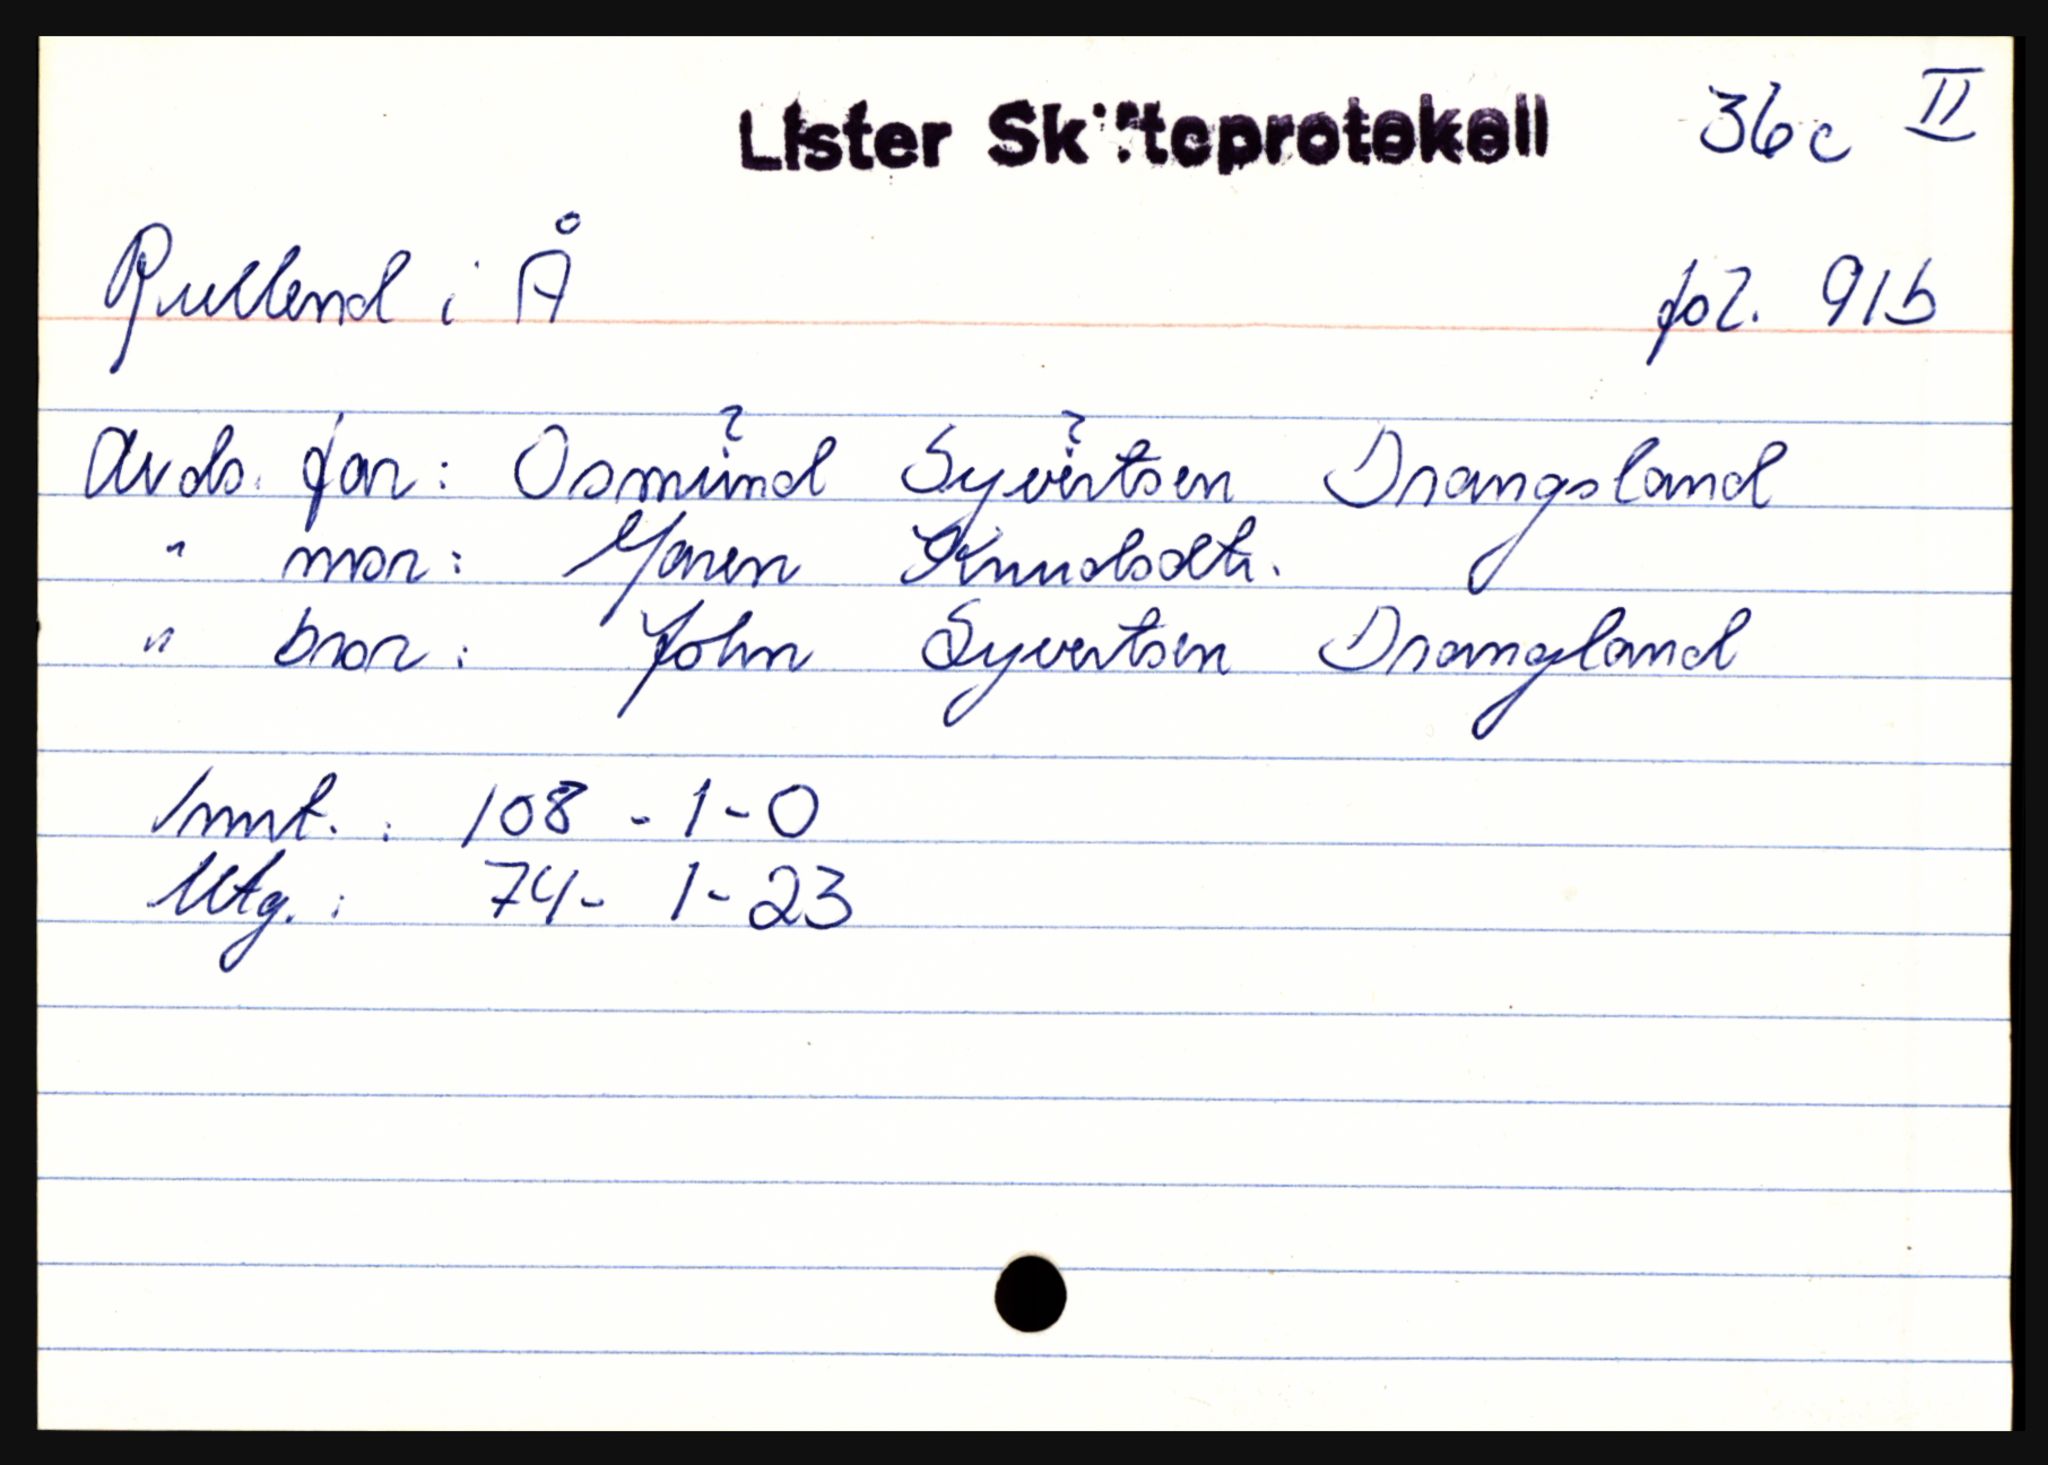 Lister Skifteprotokoll 36c II
Rulland i Å fol. 91b
Avds. far: Osmund ? Syvertsen ? Drangsland
" mor: Maren Knudsdtr.
" bror: John Syvertsen Drangland
Innt. : 108 - 1 - 0
Utg. : 74 - 1 - 23